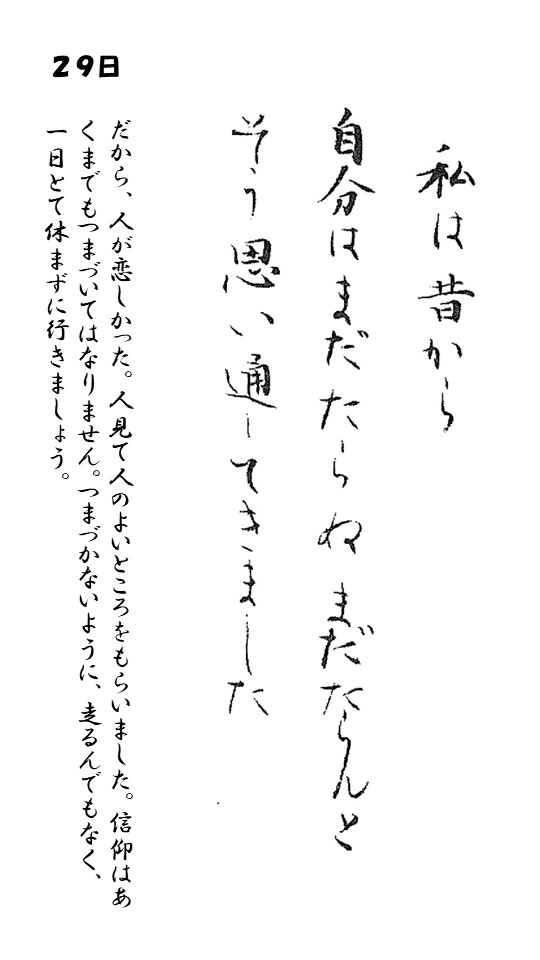 29日
私は昔から
自分はまだたらぬまだたらんと
そう思い通してきました
だから、人が恋しかった。人見て人のよいところをもらいました。信仰はあ
くまでもつまづいてはなりません。つまづかないように、走るんでもなく、
一日とて休まずに行きましょう。